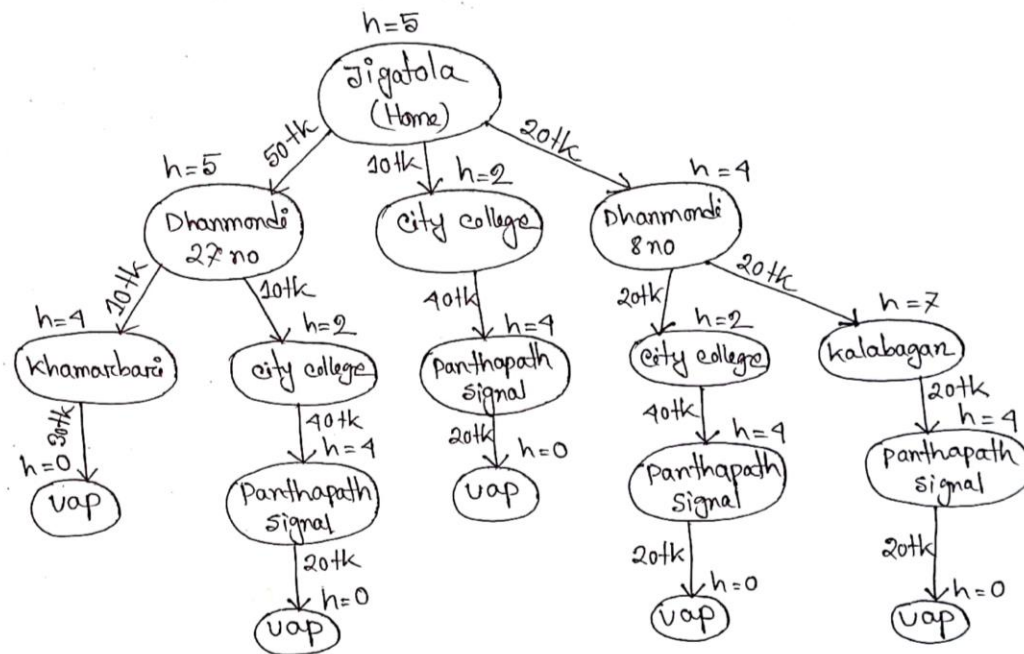 h=5
Jigatola
(Home)
50tk
10tk
20tk
h=5
h=2
h=4
Dhanmondi
27 no
City college
Dhanmondi
8 no
10tk
10tk
40tk
20tk
20tk
h=4
h=2
h=4
h=2
h=7
Khamarbari
City college
Panthapath
Signal
City college
Kalabagan
30tk
40tk
20tk
40tk
20tk
h=0
h=4
h=0
h=4
h=4
uap
Panthapath
Signal
uap
Panthapath
Signal
Panthapath
Signal
20tk
20tk
20tk
h=0
h=0
h=0
uap
uap
uap